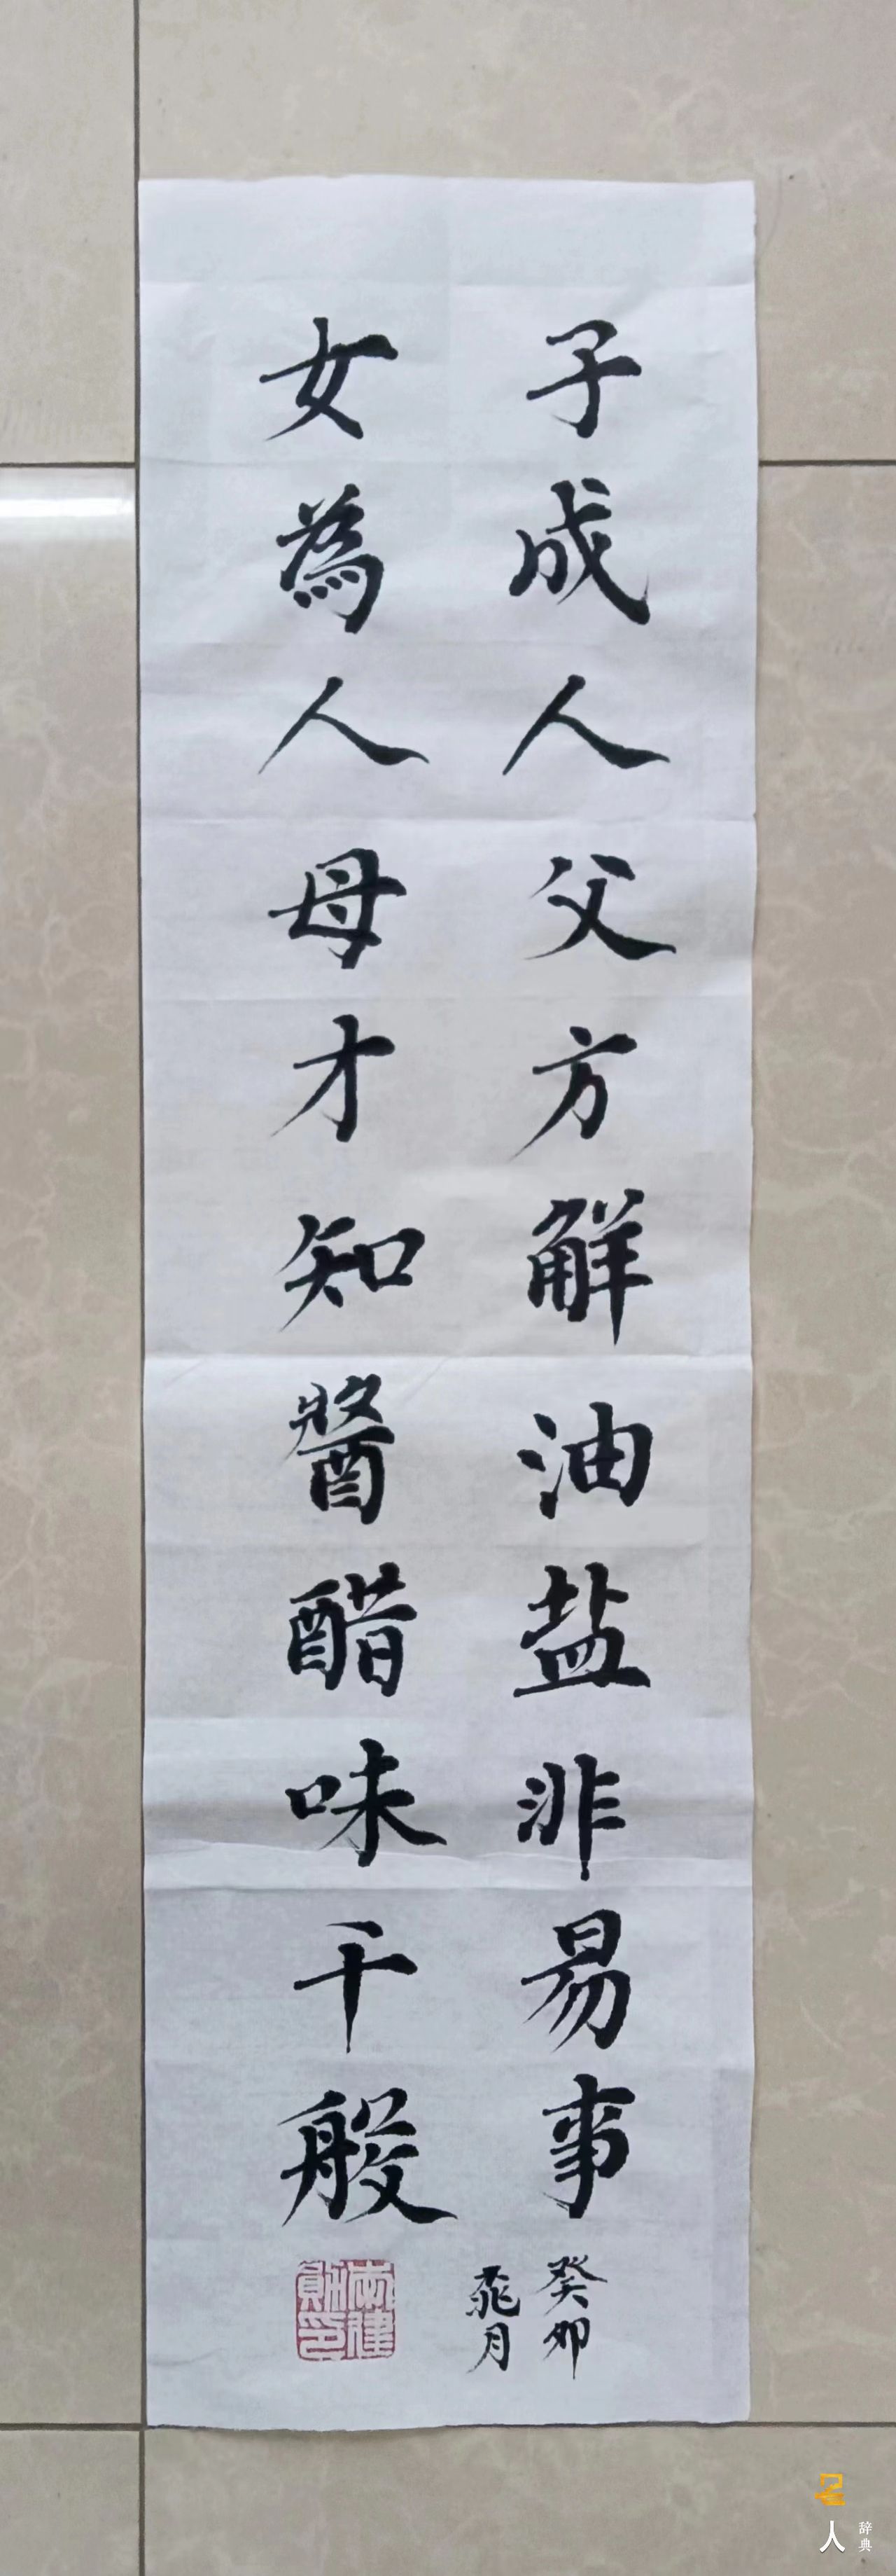 子成人父方觧油盐非易事
女為人母才知醬醋味千般
癸卯
月
人
辞典